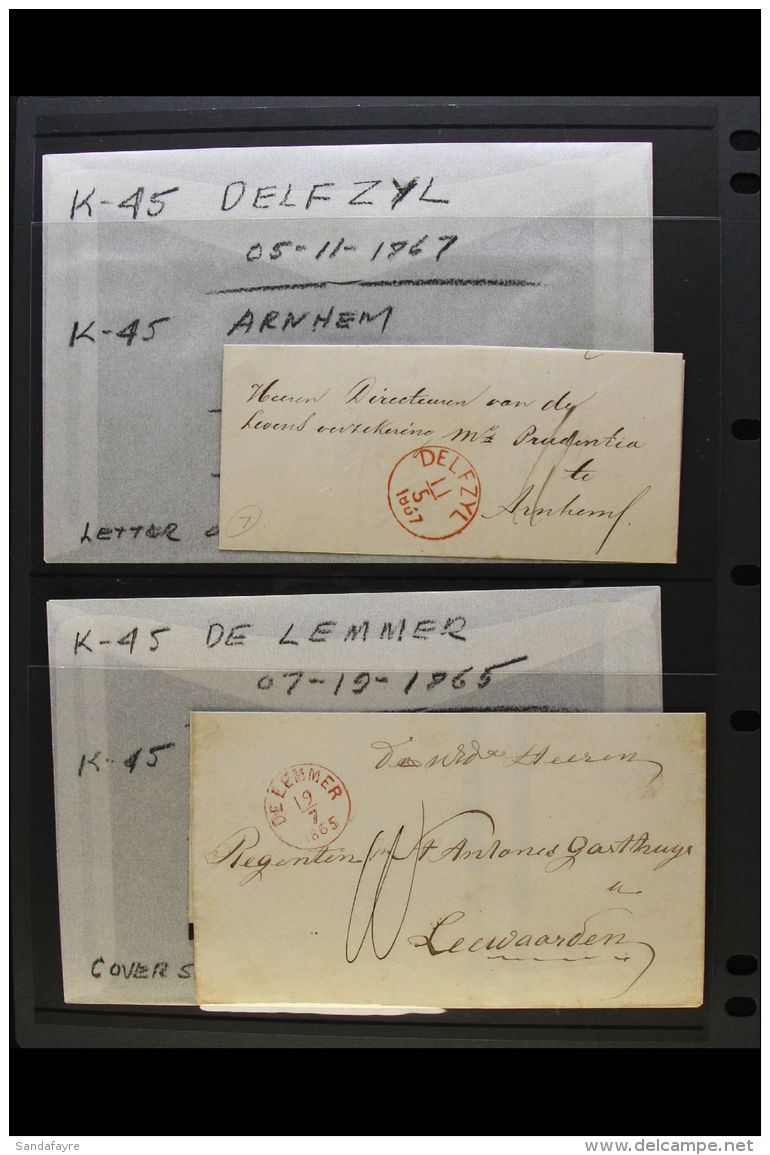 K-45 DELFZYL
05-11-1867
K-45 ARNHEM
Heeren Directeuren van de
Levens verzekering Mij Prudentia
te
Arnhem
DELFZYL
11
5
1867
7
LETTER
K-45 DE LEMMER
07-19-1865
K-45
Heeren
DE LEMMER
19
7
1865
Regenten St Antonies Gasthuys
Leeuwaarden
COVER S
Sandafayre
delcampe.net